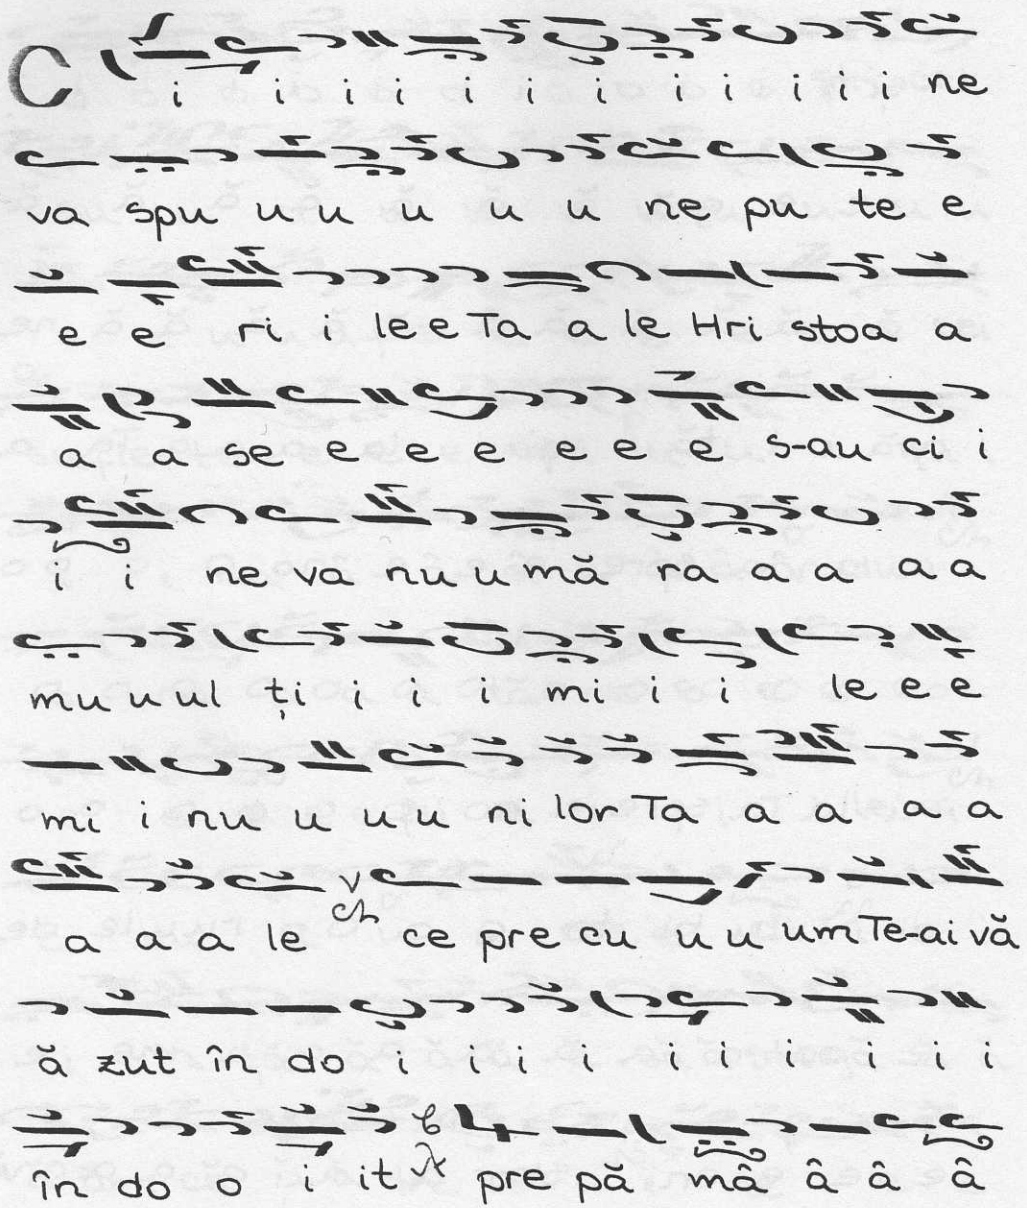 C i i i i i i i i i i i i ne
va spu u u u u u ne pu te e
e e ri i le e Ta a le Hri stoa a
a a se e e e e e e s-au ci i
i i ne va nu u mă ra a a a a
mu u ul ți i i i mi i i le e e
mi i nu u u u ni lor Ta a a a a
a a a le ce pre cu u u um Te-ai vă
ă zut în do i i i i i i i i i i
în do o i it pre pă mâ â â â